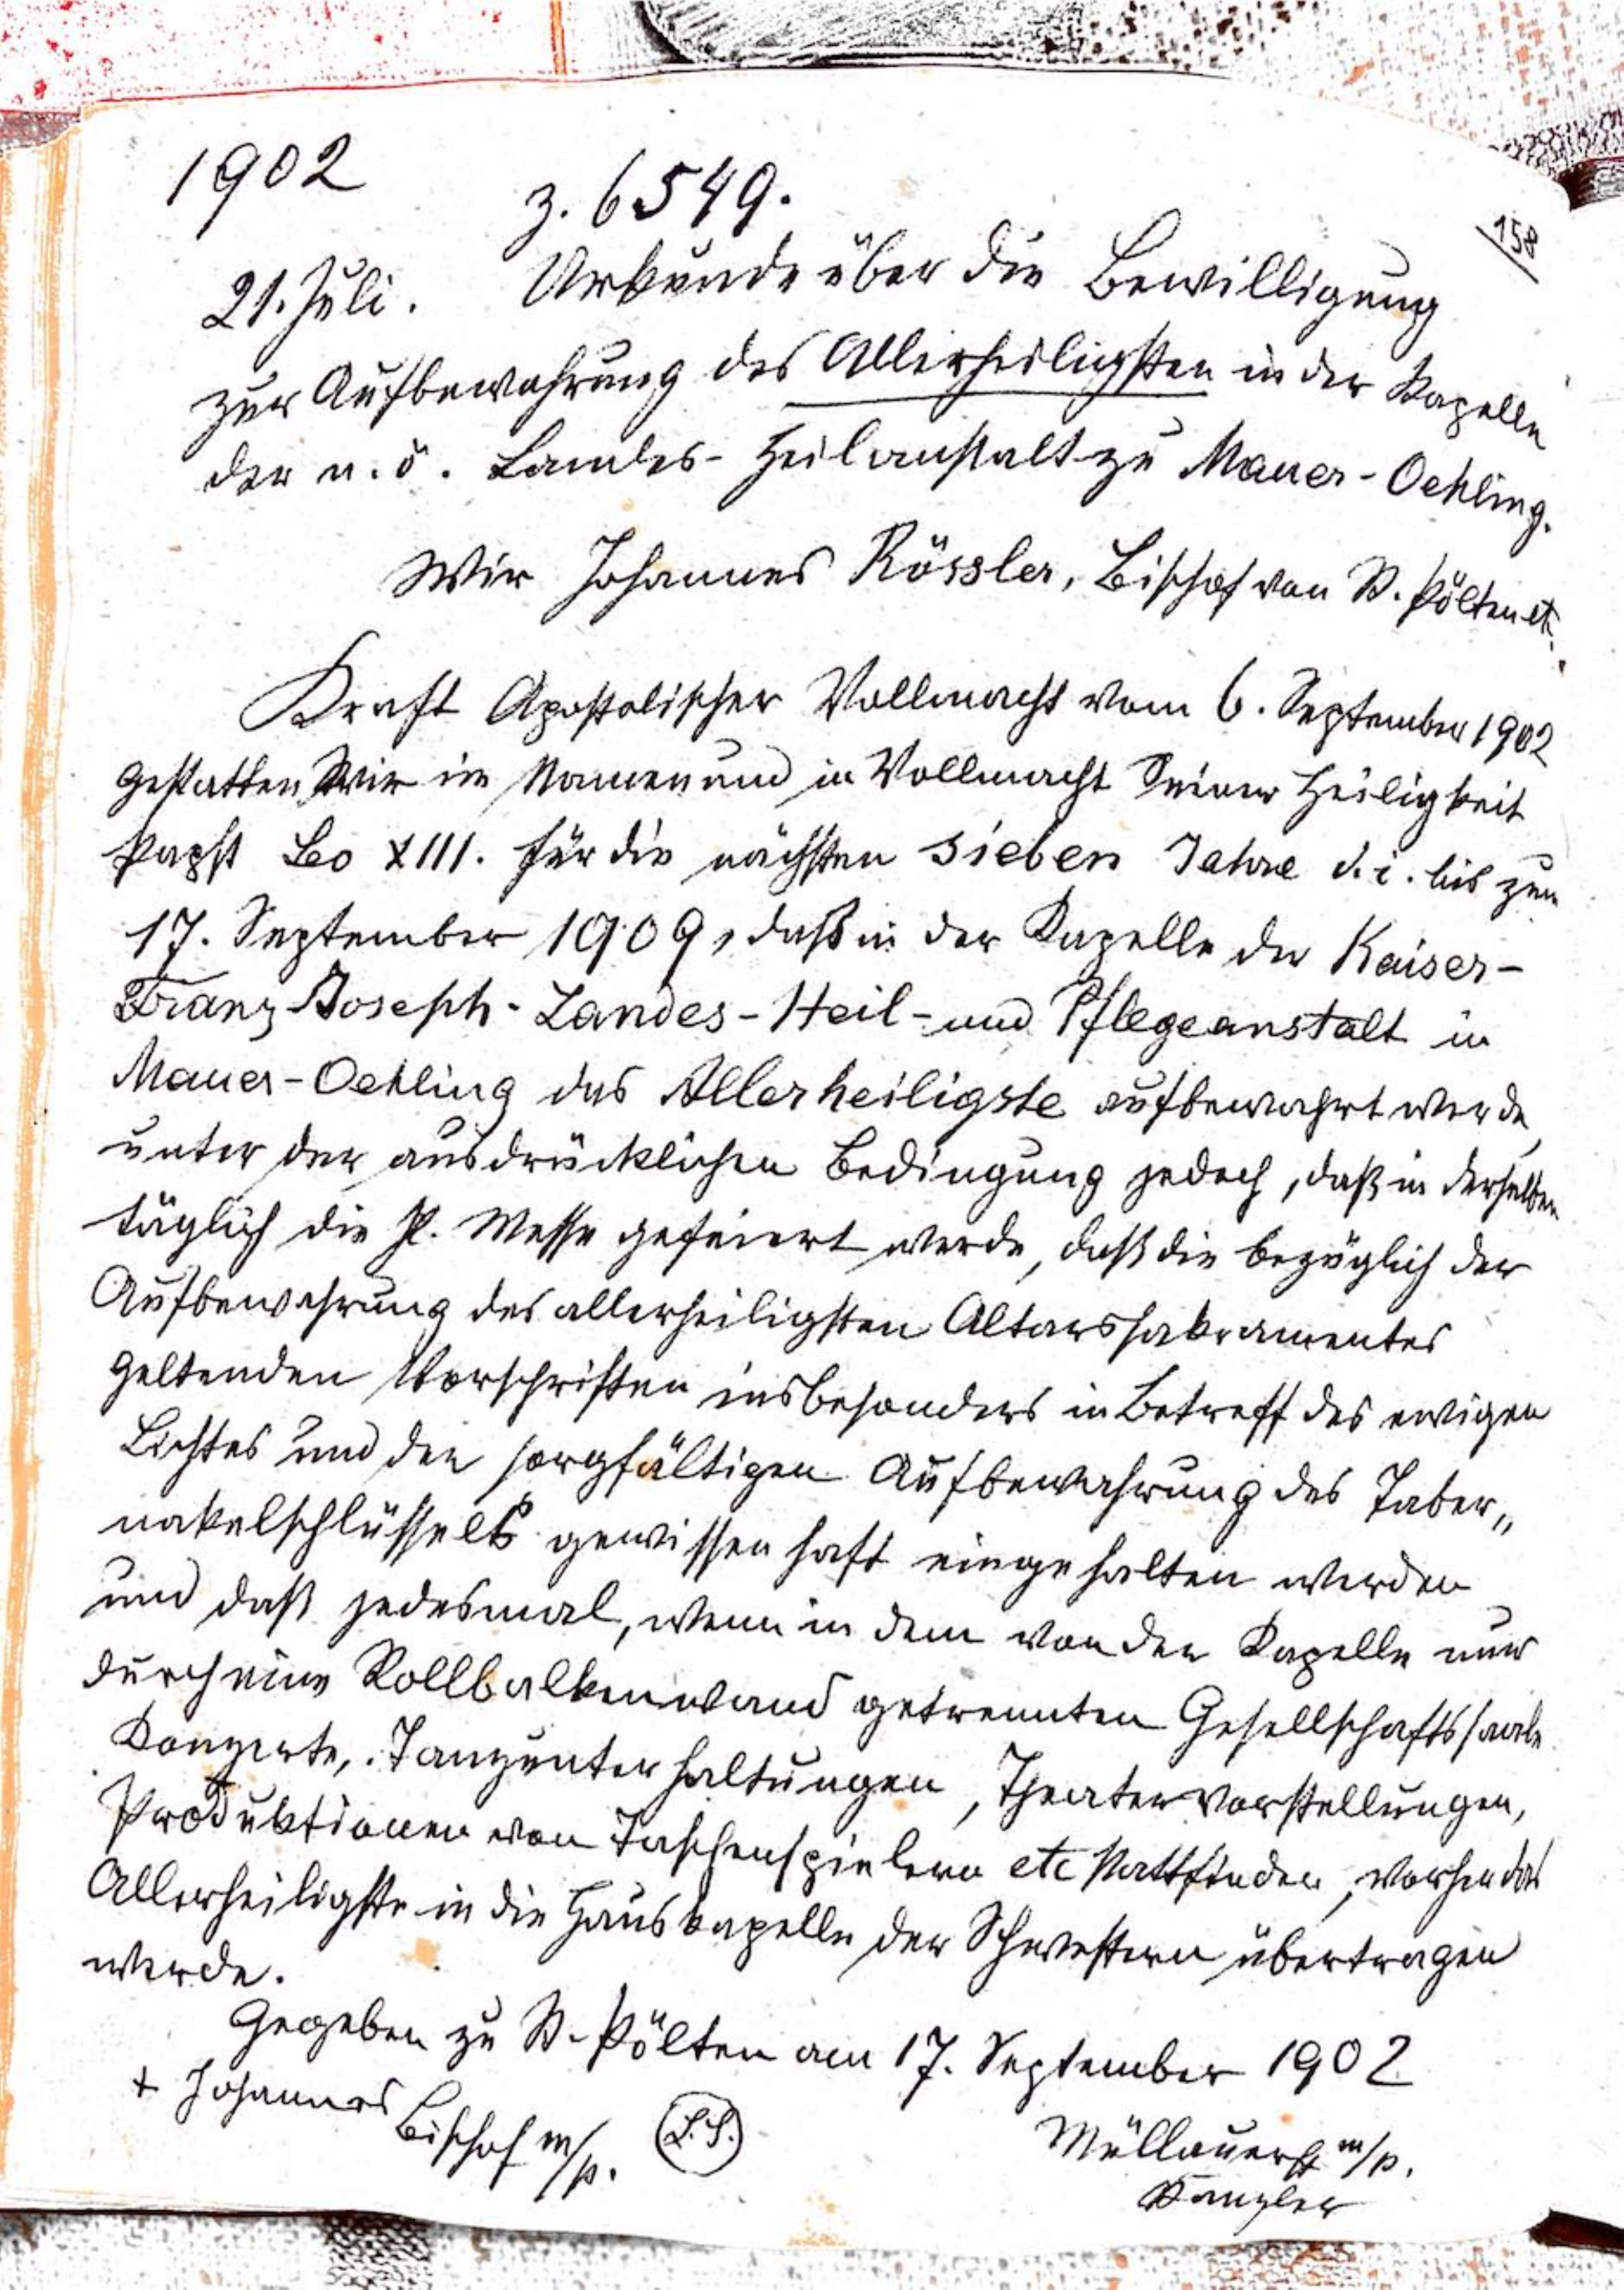 1902
z. 6549.
158
21. Juli. Urkunde über die Bewilligung
zur Aufbewahrung des Allerheiligsten in der Kapelle
der n. ö. Landes-Heilanstalt zu Mauer-Oehling.
Wir Johannes Rössler, Bischof von St. Pölten etc.
Kraft Apostolischer Vollmacht vom 6. September 1902
gestatten Wir im Namen und in Vollmacht Seiner Heiligkeit
Papst Leo XIII. für die nächsten sieben Jahre d. i. bis zum
17. September 1909, daß in der Kapelle der Kaiser-
Franz-Joseph-Landes-Heil- und Pflegeanstalt in
Mauer-Oehling das Allerheiligste aufbewahrt werde,
unter der ausdrücklichen Bedingung jedoch, daß in derselben
täglich die hl. Messe gefeiert werde, daß die bezüglich der
Aufbewahrung des allerheiligsten Altarssakramentes
geltenden Vorschriften insbesonders in Betreff des ewigen
Lichtes und der sorgfältigen Aufbewahrung des Taber„
nakelschlüssels gewissenhaft eingehalten werden
und daß jedesmal, wenn in dem von der Kapelle nur
durch eine Rollbalkenwand getrennten Gesellschaftssaale
Konzerte, Tanzunterhaltungen, Theatervorstellungen,
Produktionen von Taschenspielern etc stattfinden, vorher das
Allerheiligste in die Hauskapelle der Schwestern übertragen
werde.
Gegeben zu St. Pölten am 17. September 1902
+ Johannes
Bischof m/p. (L.S.)
Müllauer m/p.
Kanzler